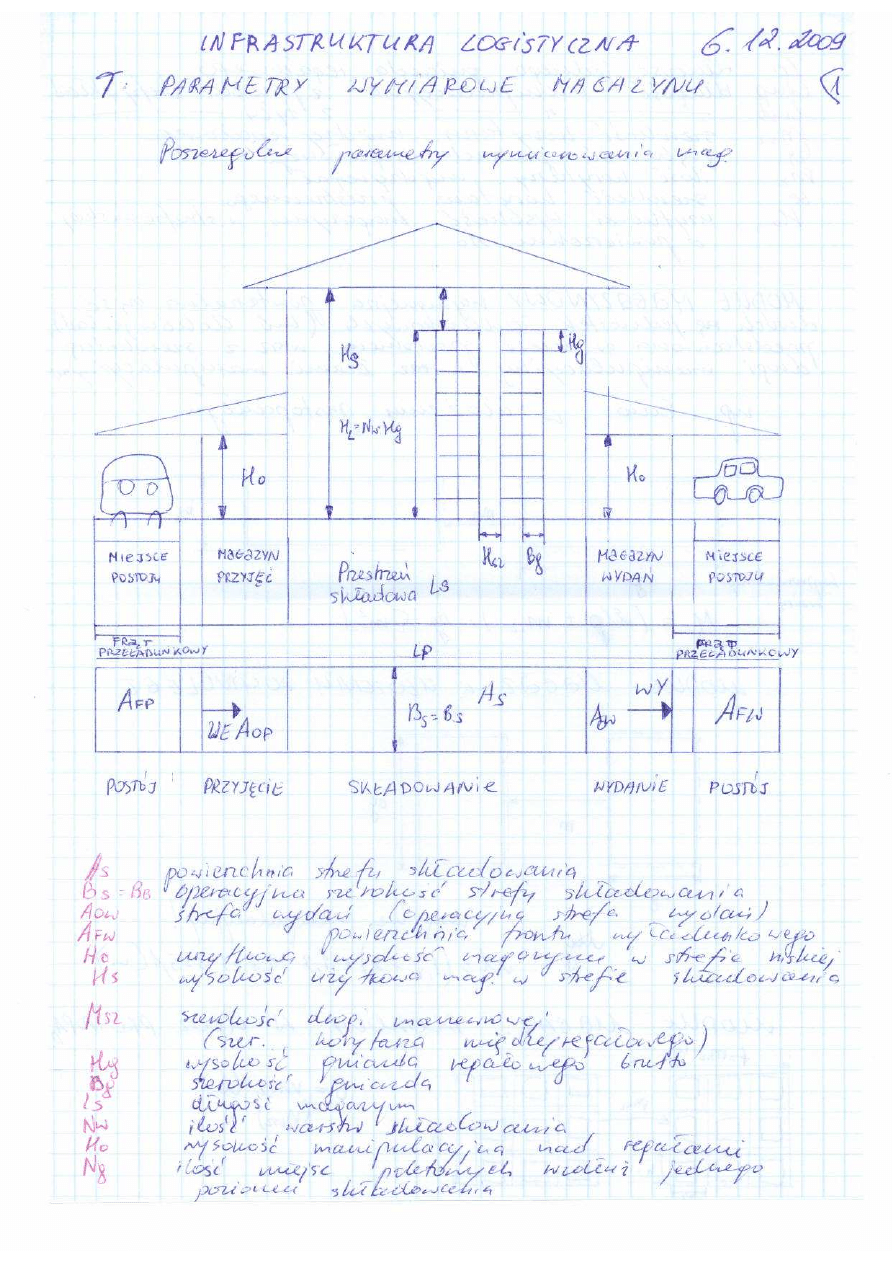 INFRASTRUKTURA LOGISTYCZNA 6.12.2009
T: PARAMETRY WYMIAROWE MAGAZYNU 1
Poszczególne parametry wymiarowania mag.
Hg
Hs
HL=Nw·Hg
Ho
Ho
MIEJSCE POSTOJU
MAGAZYN PRZYJĘĆ
Przestrzeń składowa Ls
Hsz
Bg
MAGAZYN WYDAŃ
MIEJSCE POSTOJU
PRZEŁADUNKOWY
LP
PRZEŁADUNKOWY
AFP
WE AOP
Bs=Bs
As
WY
AFW
POSTÓJ PRZYJĘCIE SKŁADOWANIE WYDANIE POSTÓJ
As powierzchnia strefy składowania
Bs=BB operacyjna szerokość strefy składowania
AOW strefa wydań (operacyjna strefa wydań)
AFW powierzchnia frontu wyładunkowego
Ho użytkowa wysokość magazynu w strefie niskiej
Hs wysokość użytkowa mag. w strefie składowania
Msz szerokość drogi manewrowej
(szer. korytarza międzyregałowego)
Hg wysokość gniazda regałowego brutto
Bg szerokość gniazda
Ls długość magazynu
Nw ilość warstw składowania
Ho wysokość manipulacyjna nad regałami
Ng ilość miejsc paletowych wzdłuż jednego
poziomu składowania